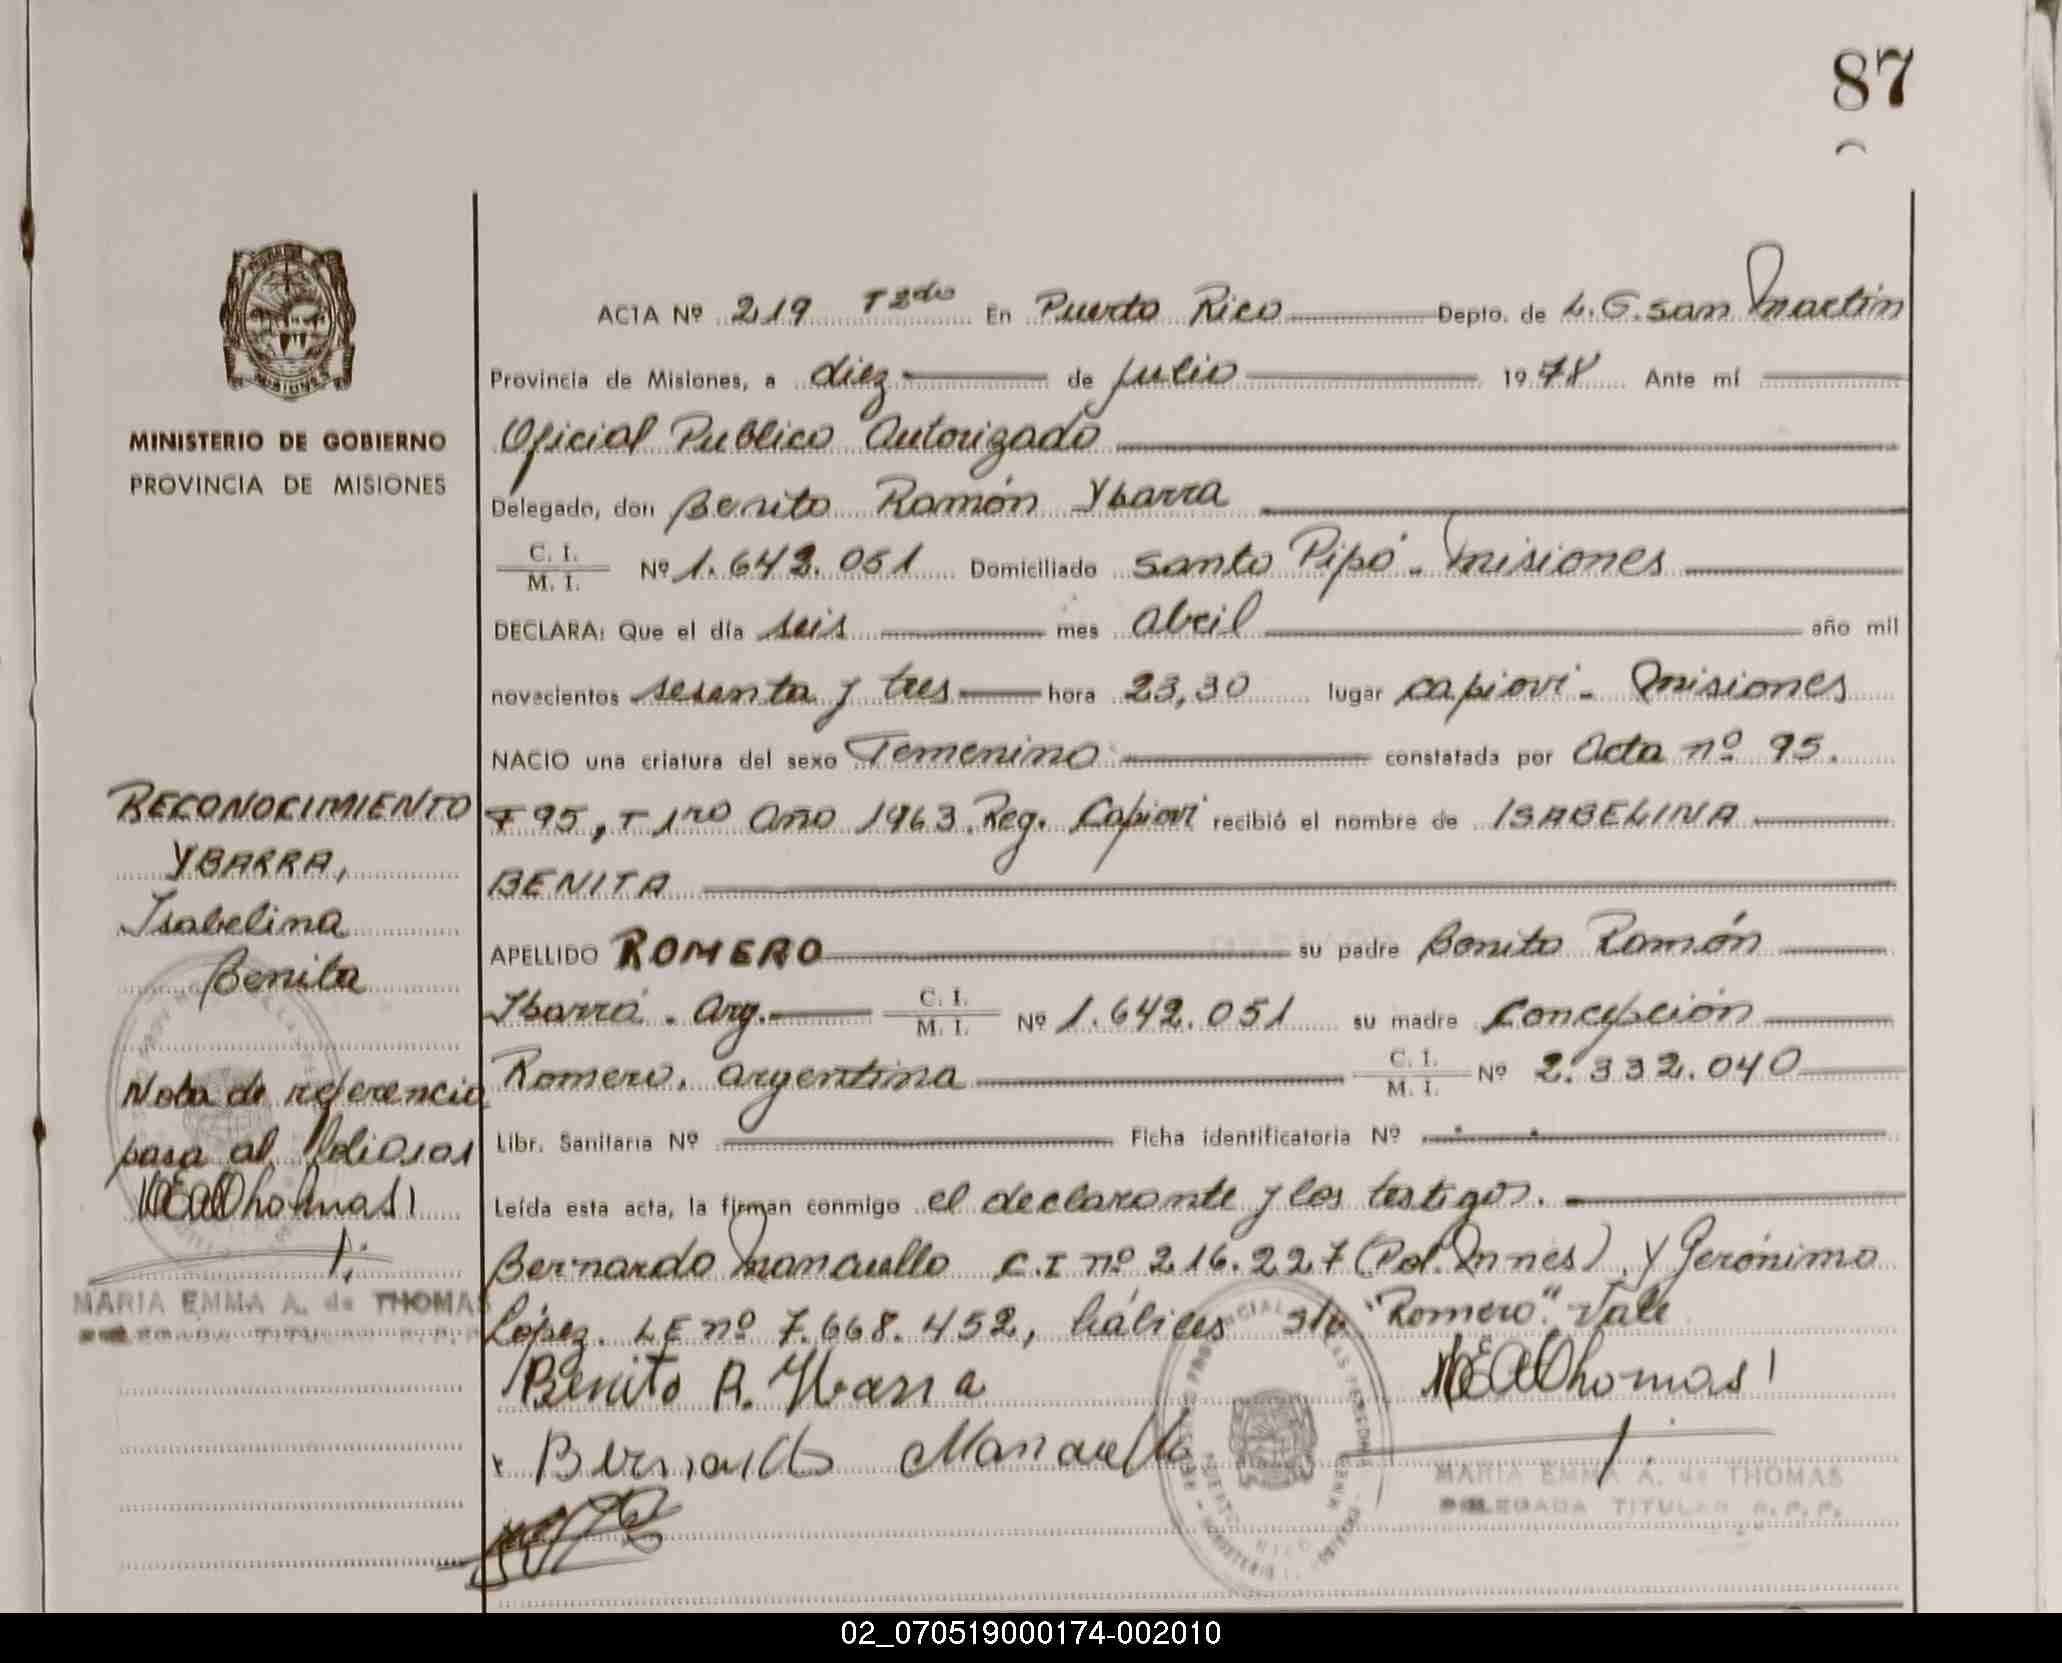 87
MINISTERIO DE GOBIERNO
PROVINCIA DE MISIONES
RECONOCIMIENTO
YBARRA,
Isabelina
Benita
Nota de referencia
pasa al folio 101
MEAThomas
MARIA EMMA A. de THOMAS
DELEGADA TITULAR R.P.P.
ACTA Nº 219 T 2do En Puerto Rico Depto. de L.G.San Martín
Provincia de Misiones, a diez de julio 1978 Ante mí
Oficial Publico Autorizado
Delegado, don Benito Ramón Ybarra
C. I.
M. I. Nº 1.642.051 Domiciliado Santo Pipó - Misiones
DECLARA: Que el día seis mes abril año mil
novecientos sesenta y tres hora 23,30 lugar Capioví - Misiones
NACIO una criatura del sexo Femenino constatada por Acta nº 95.
F 95, T 1ro Año 1963. Reg. Capioví recibió el nombre de ISABELINA
BENITA
APELLIDO ROMERO su padre Benito Ramón
Ibarra. Arg. C. I.
M. I. Nº 1.642.051 su madre Concepción
Romero. argentina C. I.
M. I. Nº 2.332.040
Libr. Sanitaria Nº Ficha identificatoria Nº
Leída esta acta, la firman conmigo el declarante y los testigos.
Bernardo Mancuello C.I nº 216.227 (Pol. Mnes) y Gerónimo
López. LE nº 7.668.452, hábiles s/b "Romero". Vale
Benito R. Ybarra MEAThomas
Bernardo Mancuello
MARIA EMMA A. de THOMAS
DELEGADA TITULAR R.P.P.
02_070519000174-002010